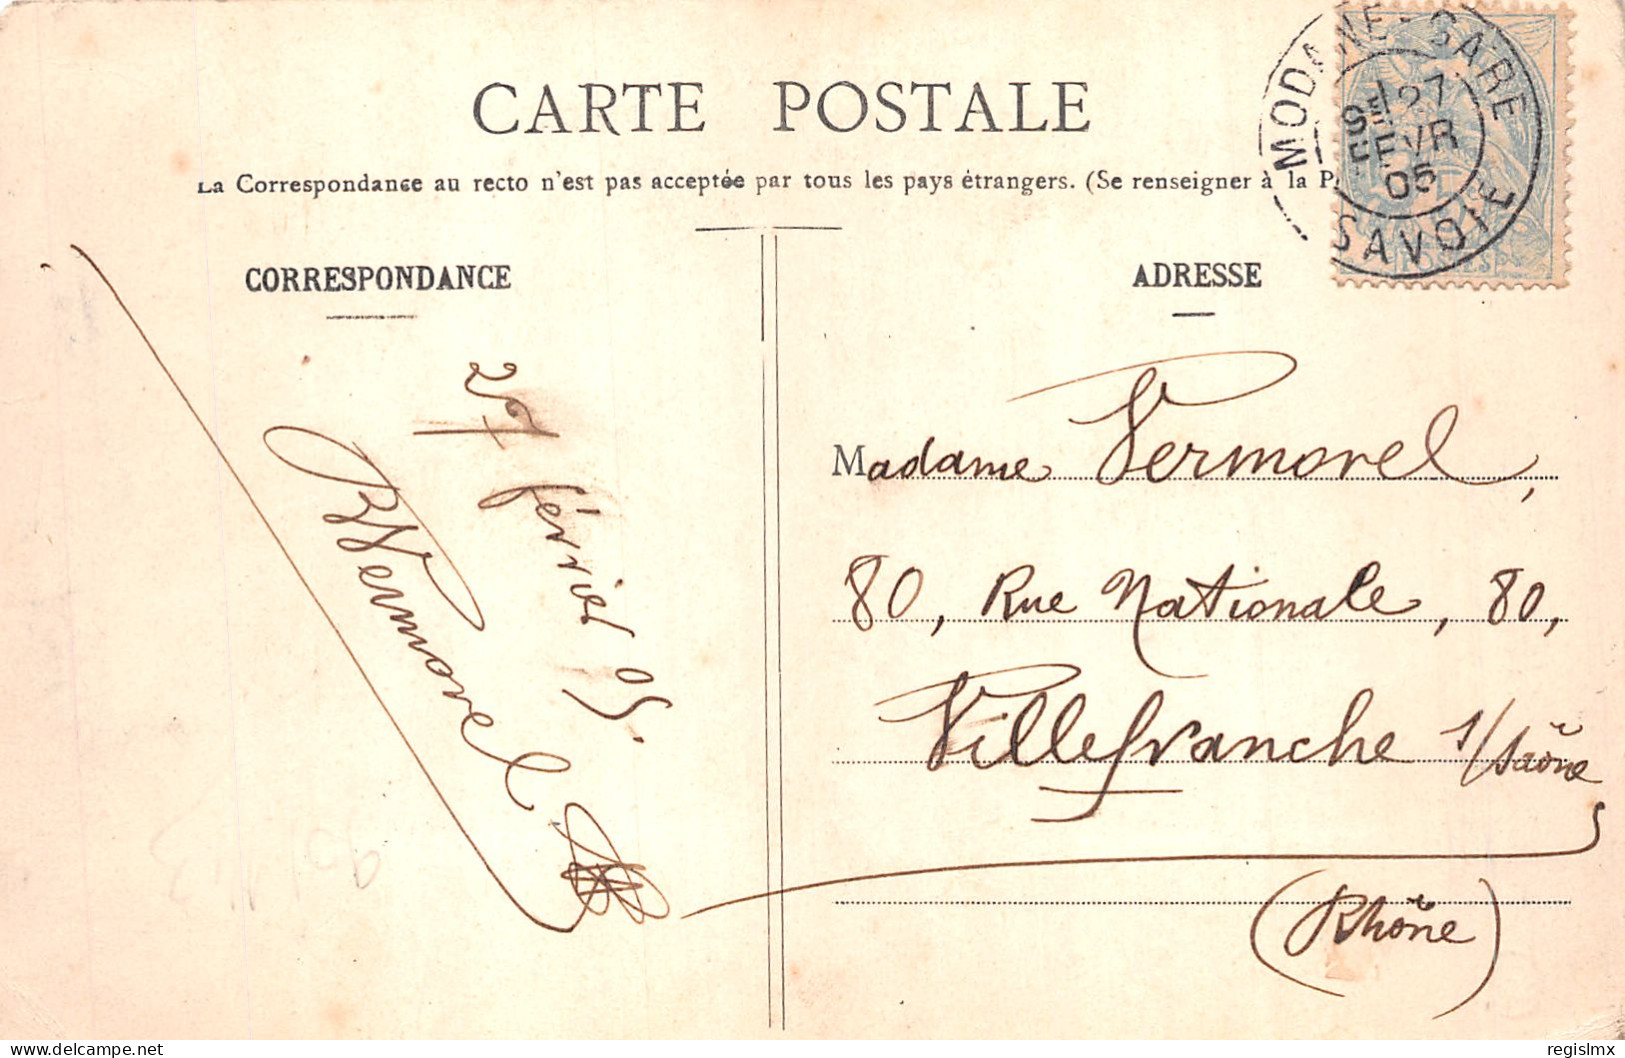 CARTE POSTALE
La Correspondance au recto n'est pas acceptée par tous les pays étrangers. (Se renseigner à la P
MODANE - GARE
27
FEVR
05
SAVOIE
POSTES
CORRESPONDANCE
ADRESSE
27 février 05.
BVermorel
Madame Vermorel,
80, Rue Nationale, 80,
Villefranche s/Saône
(Rhône)
delcampe.net
regislmx